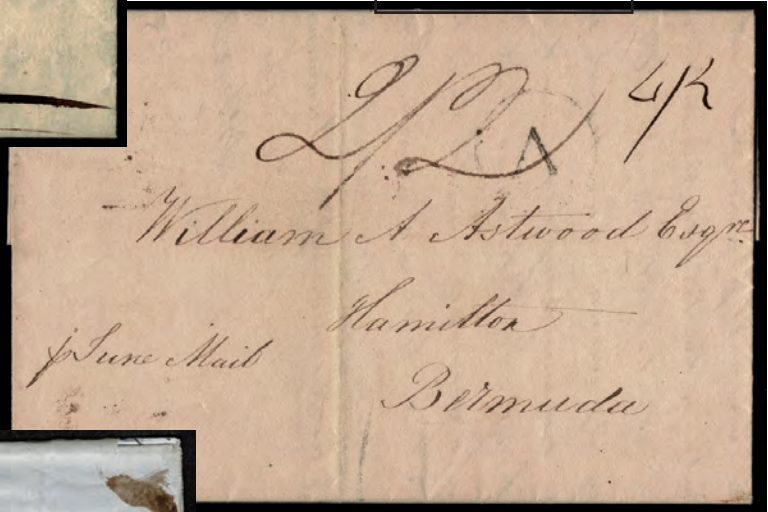 2/2
4/2
William A Astwood Esqre
Hamilton
p June Mail
Bermuda